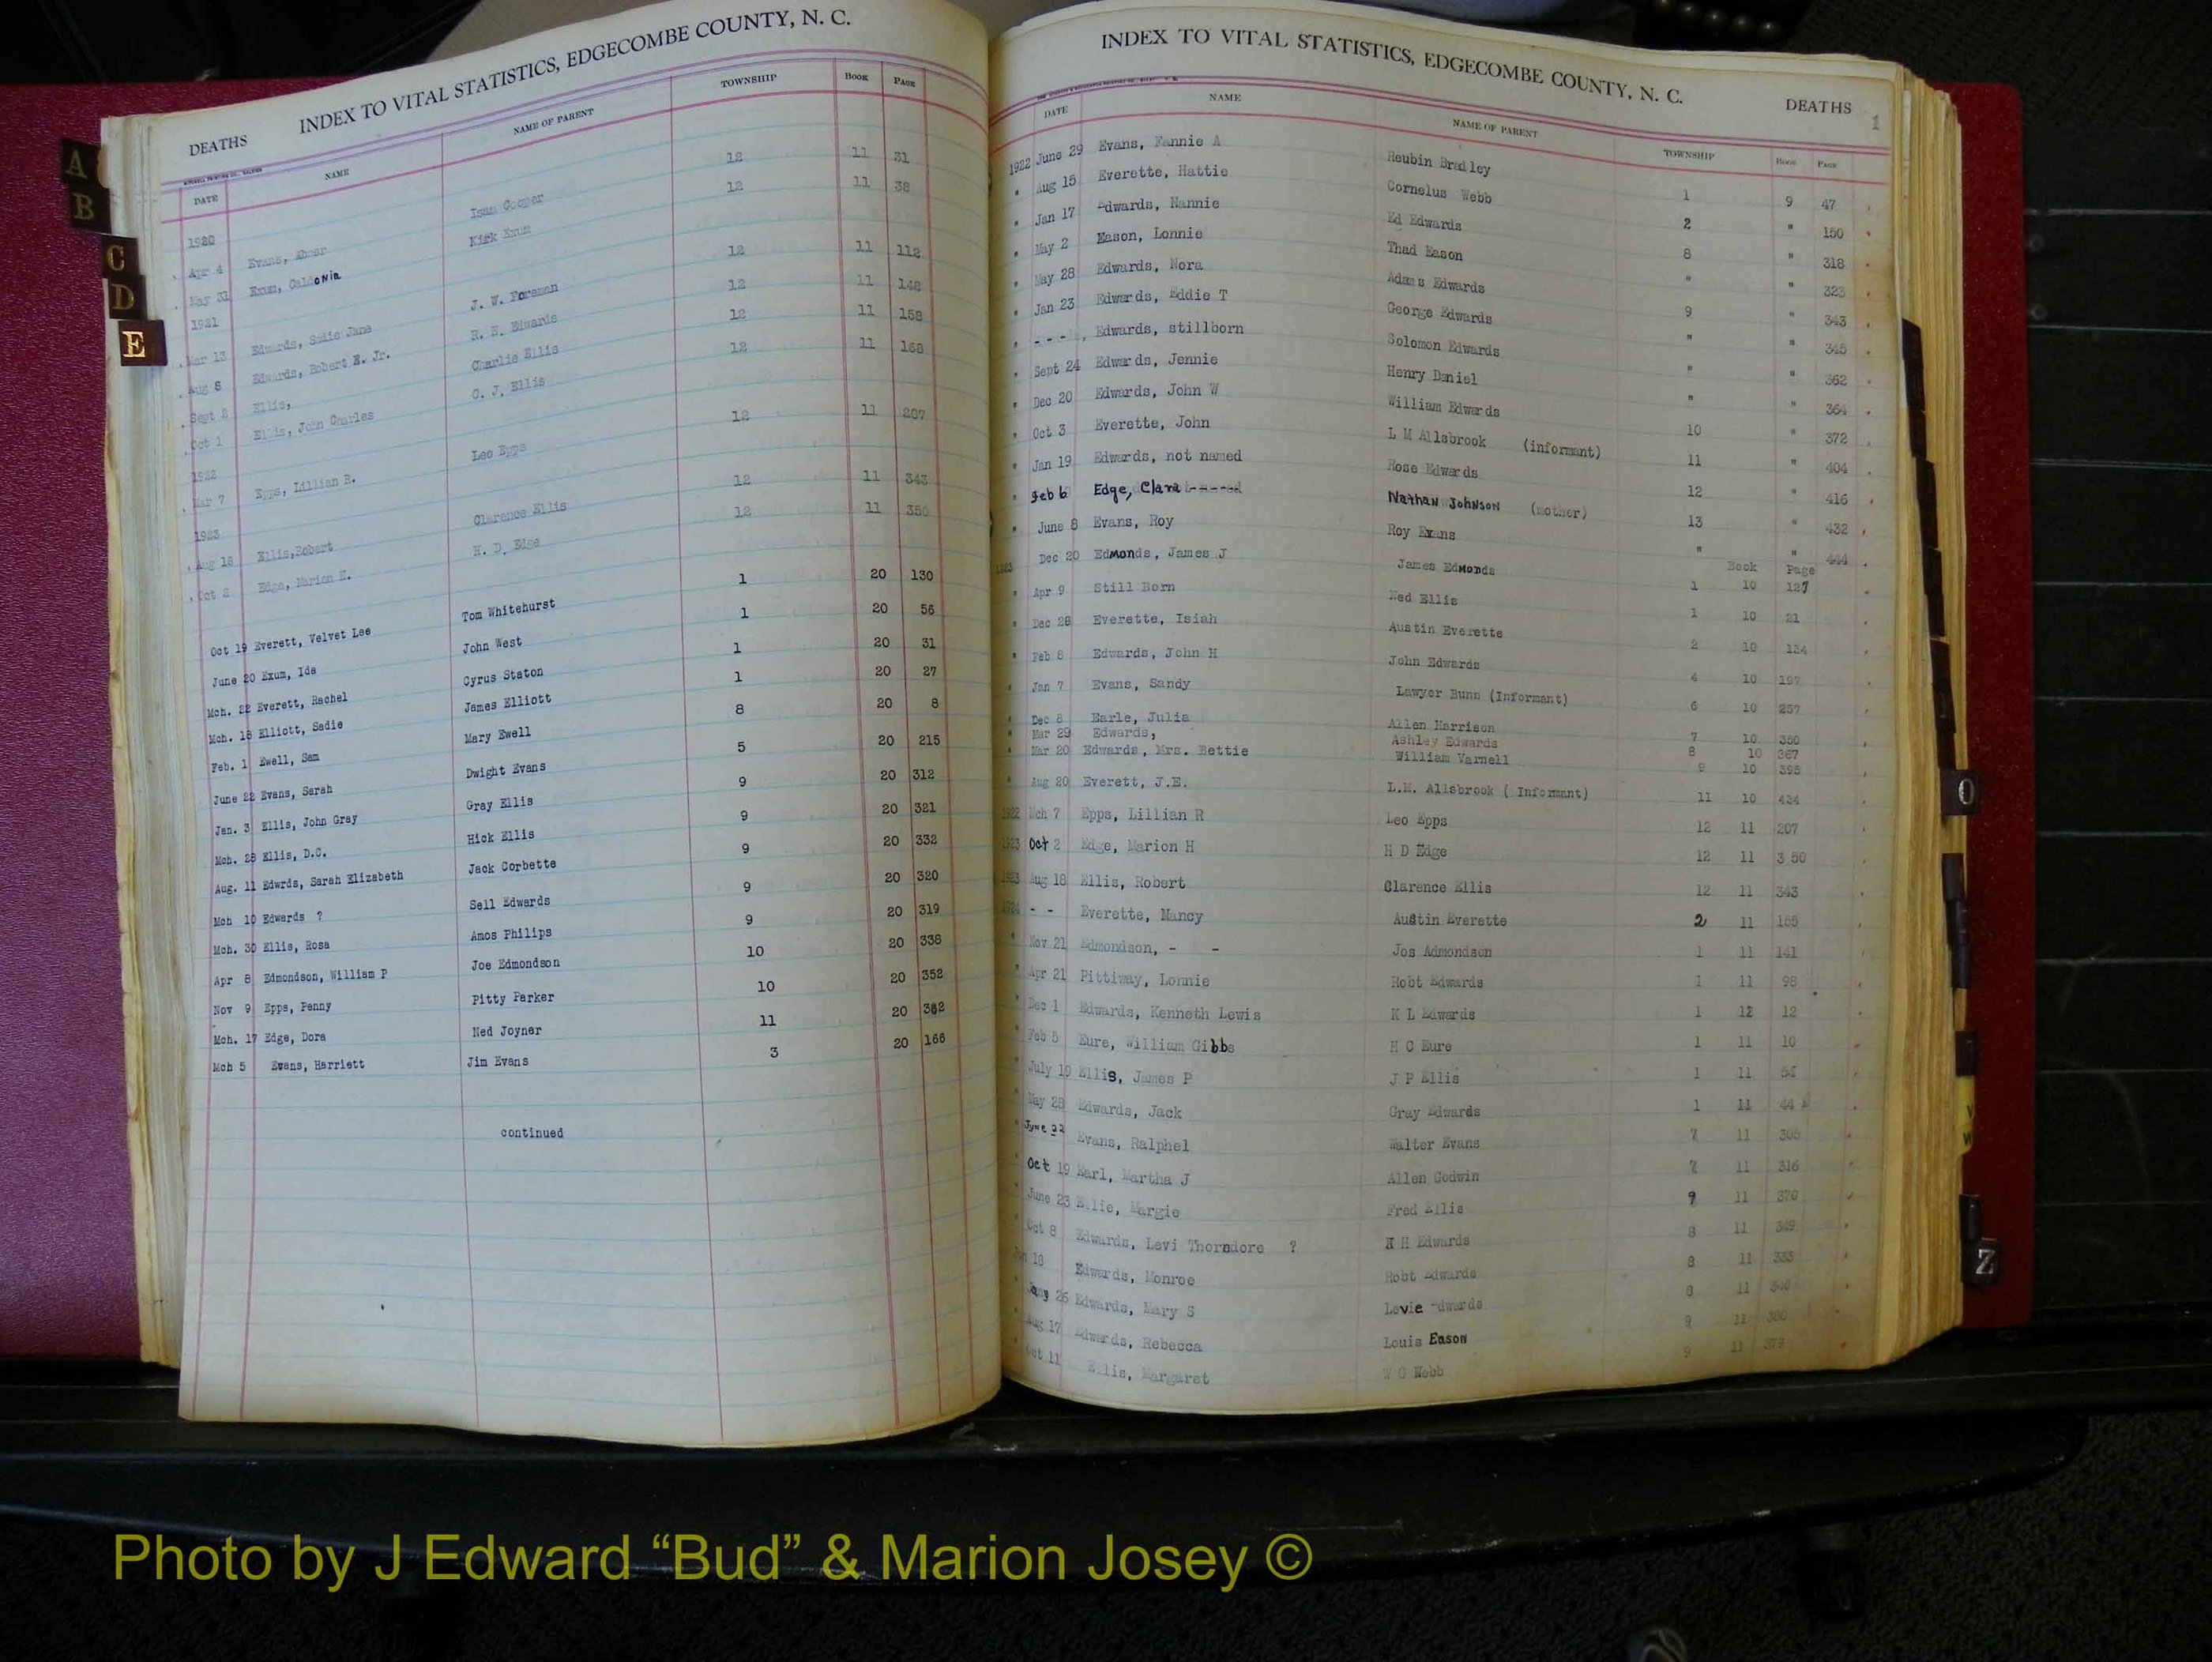 DEATHS INDEX TO VITAL STATISTICS, EDGECOMBE COUNTY, N. C.
DATE NAME NAME OF PARENT TOWNSHIP BOOK PAGE
1920
Apr 4 Evans, Isam Cooper 12 11 31
May 31 Exum, Caldonia Kirk Exum 12 11 38
1921
Mar 13 Edwards, Sadie Jane J. W. Foreman 12 11 112
Aug 8 Edwards, Robert E. Jr. R. E. Edwards 12 11 148
Sept 2 Ellis, Charlie Ellis 12 11 158
Oct 1 Ellis, John Charles C. J. Ellis 12 11 168
1922
Mar 7 Epps, Lillian R. Leo Epps 12 11 207
1923
Aug 18 Ellis,Robert Clarence Ellis 12 11 343
Oct 2 Edge, Marion H. H. D. Edge 12 11 350
Oct 19 Everett, Velvet Lee Tom Whitehurst 1 20 130
June 20 Exum, Ida John West 1 20 56
Mch. 22 Everett, Rachel Cyrus Staton 1 20 31
Mch. 18 Elliott, Sadie James Elliott 1 20 27
Feb. 1 Ewell, Sam Mary Ewell 8 20 8
June 22 Evans, Sarah Dwight Evans 5 20 215
Jan. 3 Ellis, John Gray Gray Ellis 9 20 312
Mch. 28 Ellis, D.C. Hick Ellis 9 20 321
Aug. 11 Edwrds, Sarah Elizabeth Jack Corbette 9 20 332
Mch 10 Edwards ? Sell Edwards 9 20 320
Mch. 30 Ellis, Rosa Amos Philips 9 20 319
Apr 8 Edmondson, William P Joe Edmondson 10 20 338
Nov 9 Epps, Penny Pitty Parker 10 20 352
Mch. 17 Edge, Dora Ned Joyner 11 20 382
Mch 5 Evans, Harriett Jim Evans 3 20 166
continued
INDEX TO VITAL STATISTICS, EDGECOMBE COUNTY, N. C. DEATHS 1
DATE NAME NAME OF PARENT TOWNSHIP BOOK PAGE
1922 June 29 Evans, Fannie A Reubin Bradley 1 9 47
" Aug 15 Everette, Hattie Cornelus Webb 2 " 150
" Jan 17 Edwards, Nannie Ed Edwards 8 " 318
" May 2 Eason, Lonnie Thad Eason " " 323
" May 28 Edwards, Nora Adams Edwards 9 " 343
" Jan 23 Edwards, Eddie T George Edwards " " 345
" - - - Edwards, stillborn Solomon Edwards " " 362
" Sept 24 Edwards, Jennie Henry Daniel " " 364
" Dec 20 Edwards, John W William Edwards 10 " 372
" Oct 3 Everette, John L M Allsbrook (informant) 11 " 404
" Jan 19 Edwards, not named Rose Edwards (mother) 12 " 416
" Feb 6 Edge, Clara Nathan Johnson 13 " 432
" June 8 Evans, Roy Roy Evans " " 444
" Dec 20 Edmonds, James J James Edmonds Book Page
1923 Apr 9 Still Born Ned Ellis 1 10 127
" Dec 28 Everette, Isiah Austin Everette 1 10 21
" Feb 8 Edwards, John H John Edwards 2 10 134
" Jan 7 Evans, Sandy Lawyer Bunn (Informant) 4 10 197
" Dec 8 Earle, Julia Allen Harrison 6 10 257
" Mar 29 Edwards, Ashley Edwards 7 10 350
" Mar 20 Edwards, Mrs. Bettie William Varnell 8 10 367
" Aug 20 Everett, J.E. L.M. Allsbrook ( Informant) 9 10 395
11 10 434
1922 Mch 7 Epps, Lillian R Leo Epps 12 11 207
1923 Oct 2 Edge, Marion H H D Edge 12 11 3 50
1923 Aug 18 Ellis, Robert Clarence Ellis 12 11 343
1924 - - Everette, Nancy Austin Everette 2 11 155
" Nov 21 Edmondson, - - Jos Admondson 1 11 141
" Apr 21 Pittiway, Lonnie Robt Edwards 1 11 98
" Dec 1 Edwards, Kenneth Lewis K L Edwards 1 12 12
" Feb 5 Eure, William Gibbs H C Eure 1 11 10
" July 19 Ellis, James P J P Ellis 1 11 54
" May 28 Edwards, Jack Gray Edwards 1 11 44
" June 22 Evans, Ralphel Walter Evans 7 11 305
" Oct 19 Earl, Martha J Allen Godwin 7 11 316
" June 23 Ellis, Margie Fred Ellis 9 11 370
" Oct 8 Edwards, Levi Thorndore ? H H Edwards 8 11 349
Jan 18 Edwards, Monroe Robt Edwards 8 11 333
" 26 Edwards, Mary S Levie Edwards 8 11 340
" Aug 17 Edwards, Rebecca Louis Eason 9 11 380
" Oct 11 Ellis, Margaret W G Webb 9 11 379
A
B
C
D
E
O
V
W
Z
Photo by J Edward “Bud” & Marion Josey ©